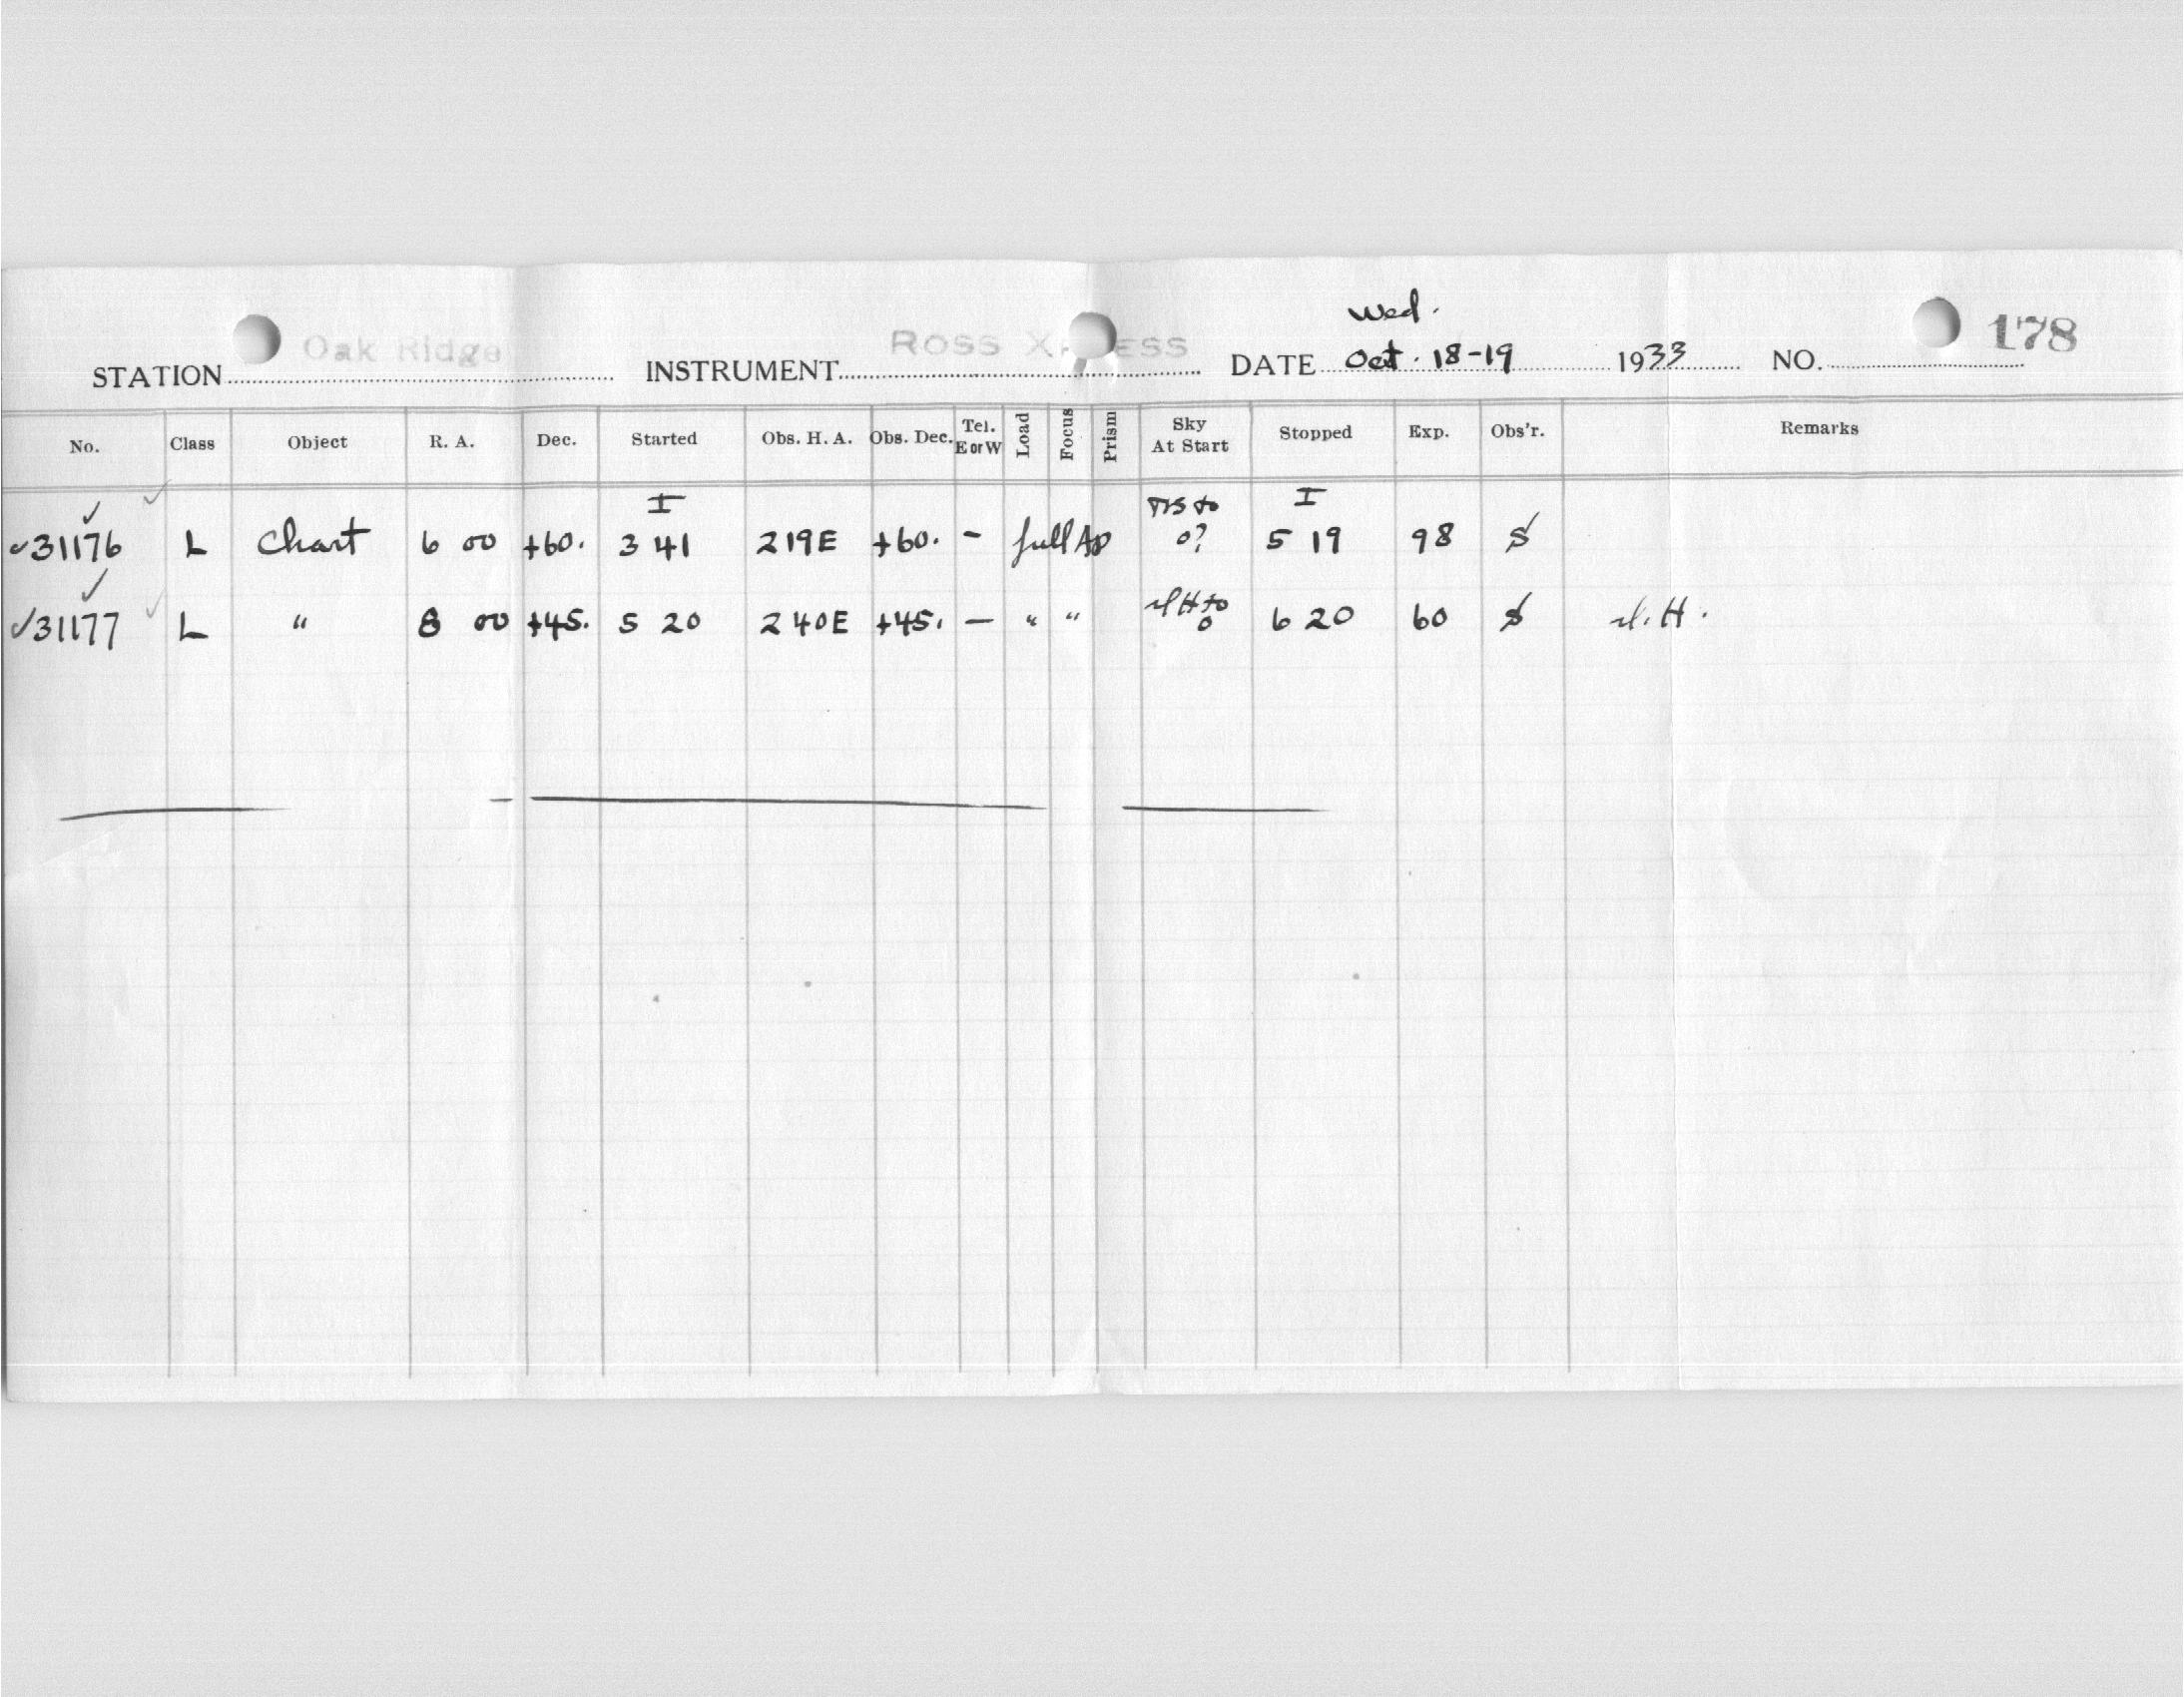 Wed.
STATION Oak Ridge INSTRUMENT Ross X ESS DATE Oct. 18-19 1933 NO. 178
No. Class Object R. A. Dec. Started Obs. H. A. Obs. Dec. Tel. E or W Load Focus Prism Sky At Start Stopped Exp. Obs'r. Remarks
I I
31176 L Chart 6 00 +60. 3 41 219E +60. - full Ap to 0? 5 19 98 S
31177 L " 8 00 +45. 5 20 240E +45. - " " H to 0 6 20 60 S H.